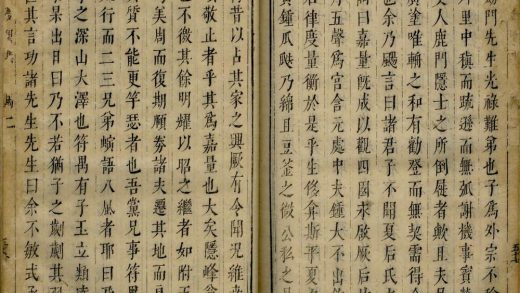 門先生光祿難弟也子爲外宗不
里中稹而疏遜而無弧謝機事
人鹿門隱士之所倒屣者歟且夫
章唯輔之和有勸登而無契需得
也余乃颺言曰諸君子不聞夏后氏
詞曰嘉量旣成以觀四國永啟厥后
于五聲爲宮含元處中夫鍾大不出
律度量衡於是乎生侈弇斯平夏
黃鍾瓜瓞乃綿且豆釜之微公私之
昔以占其家之興厥有令聞況維
敬止者乎其爲嘉量也大矣隱峰
之不微其餘明燿以昭之繼者如附
美周而復期願諸夫遷其地而
質不能更瑟者也吾黨兄事符
行而二三兄弟語八風者耶曰
之深山大澤也符禺有子玉立類
果出目曰乃不若猶子之劇劇其
其言功諸先生先生曰余不敏式
二